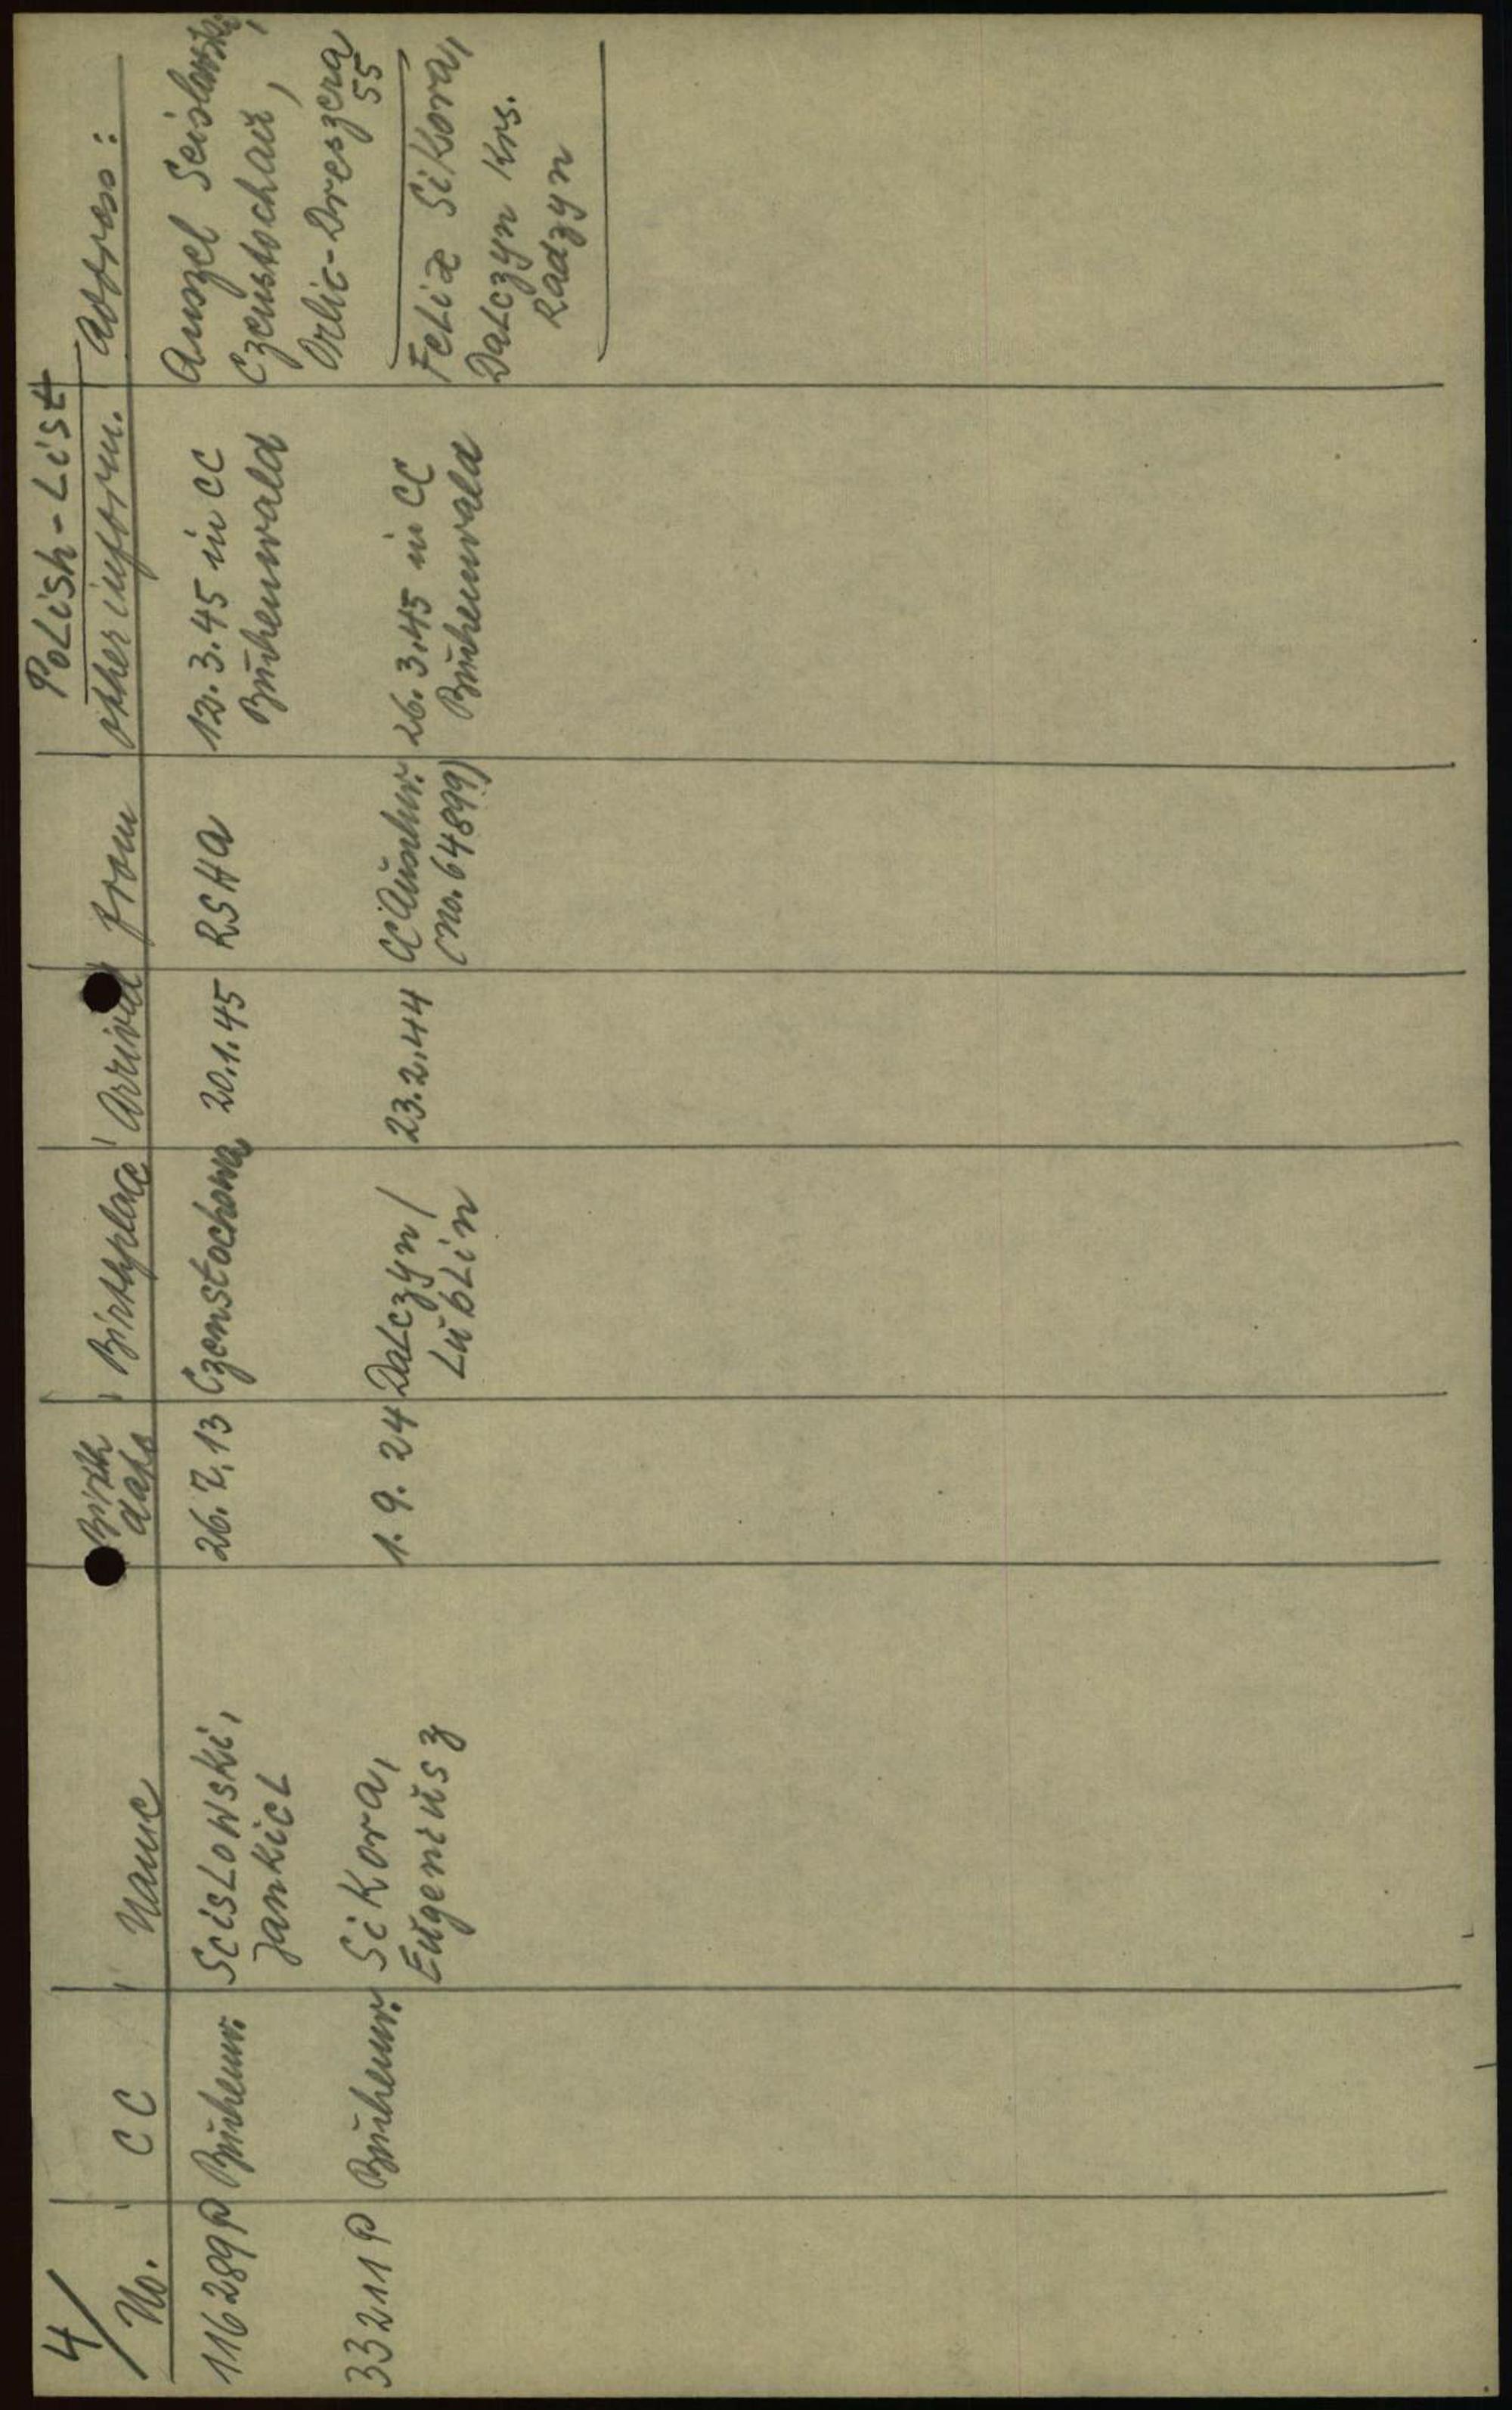 4/ Polish-List
No. CC Name Birth date Birthplace Arrival from other inform. Address:
116289 P Buchenw. Scislowski, 26.7.13 Czenstochowa 20.1.45 RSHA 12.3.45 in CC Anszel Scislowski,
Jankiel Buchenwald Czenstochau,
Orlic-Dreszera
55
33211 P Buchenw. Sikora, 1.9.24 Dalczyn/ 23.2.44 CC Auschw. 26.3.45 in CC Felix Sikora,
Eugeniusz Lublin (no. 64899) Buchenwald Dalczyn Krs.
Radzyn